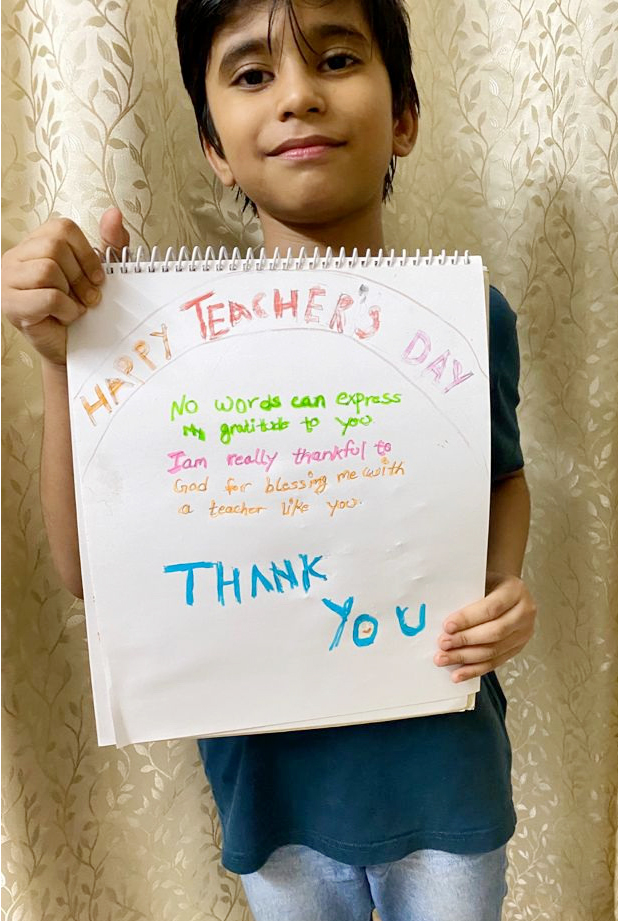 HAPPY TEACHER'S DAY
No words can express
My gratitude to you.
Iam really thankful to
God for blessing me with
a teacher like you.
THANK
YOU